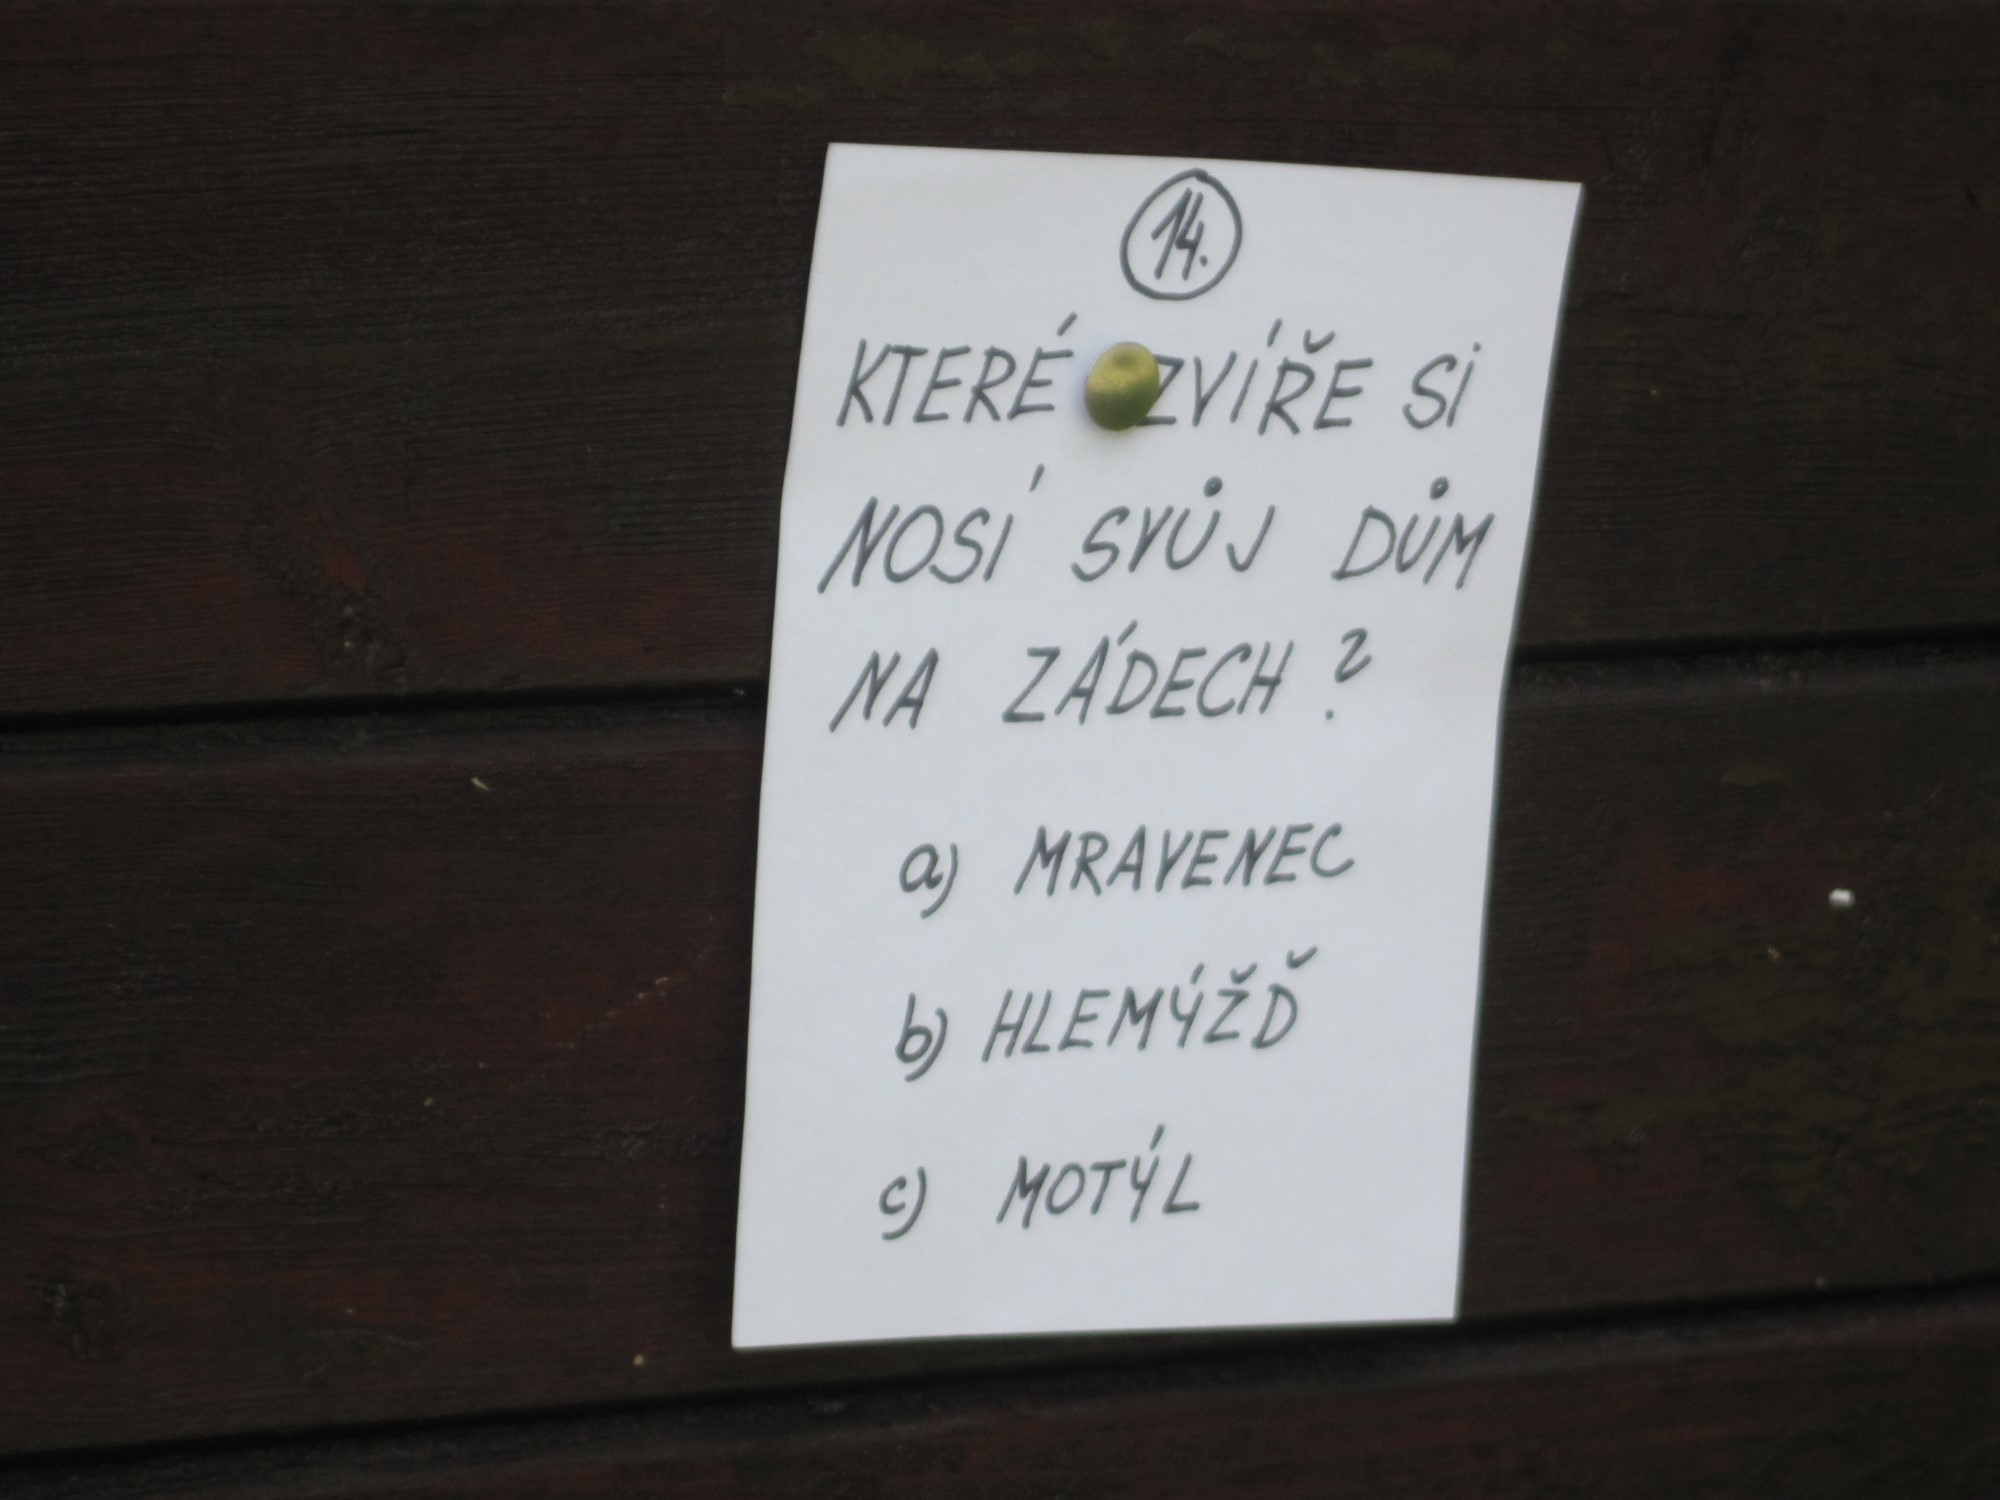 14.
KTERÉ ZVÍŘE SI
NOSÍ SVŮJ DŮM
NA ZÁDECH?
a) MRAVENEC
b) HLEMÝŽĎ
c) MOTÝL